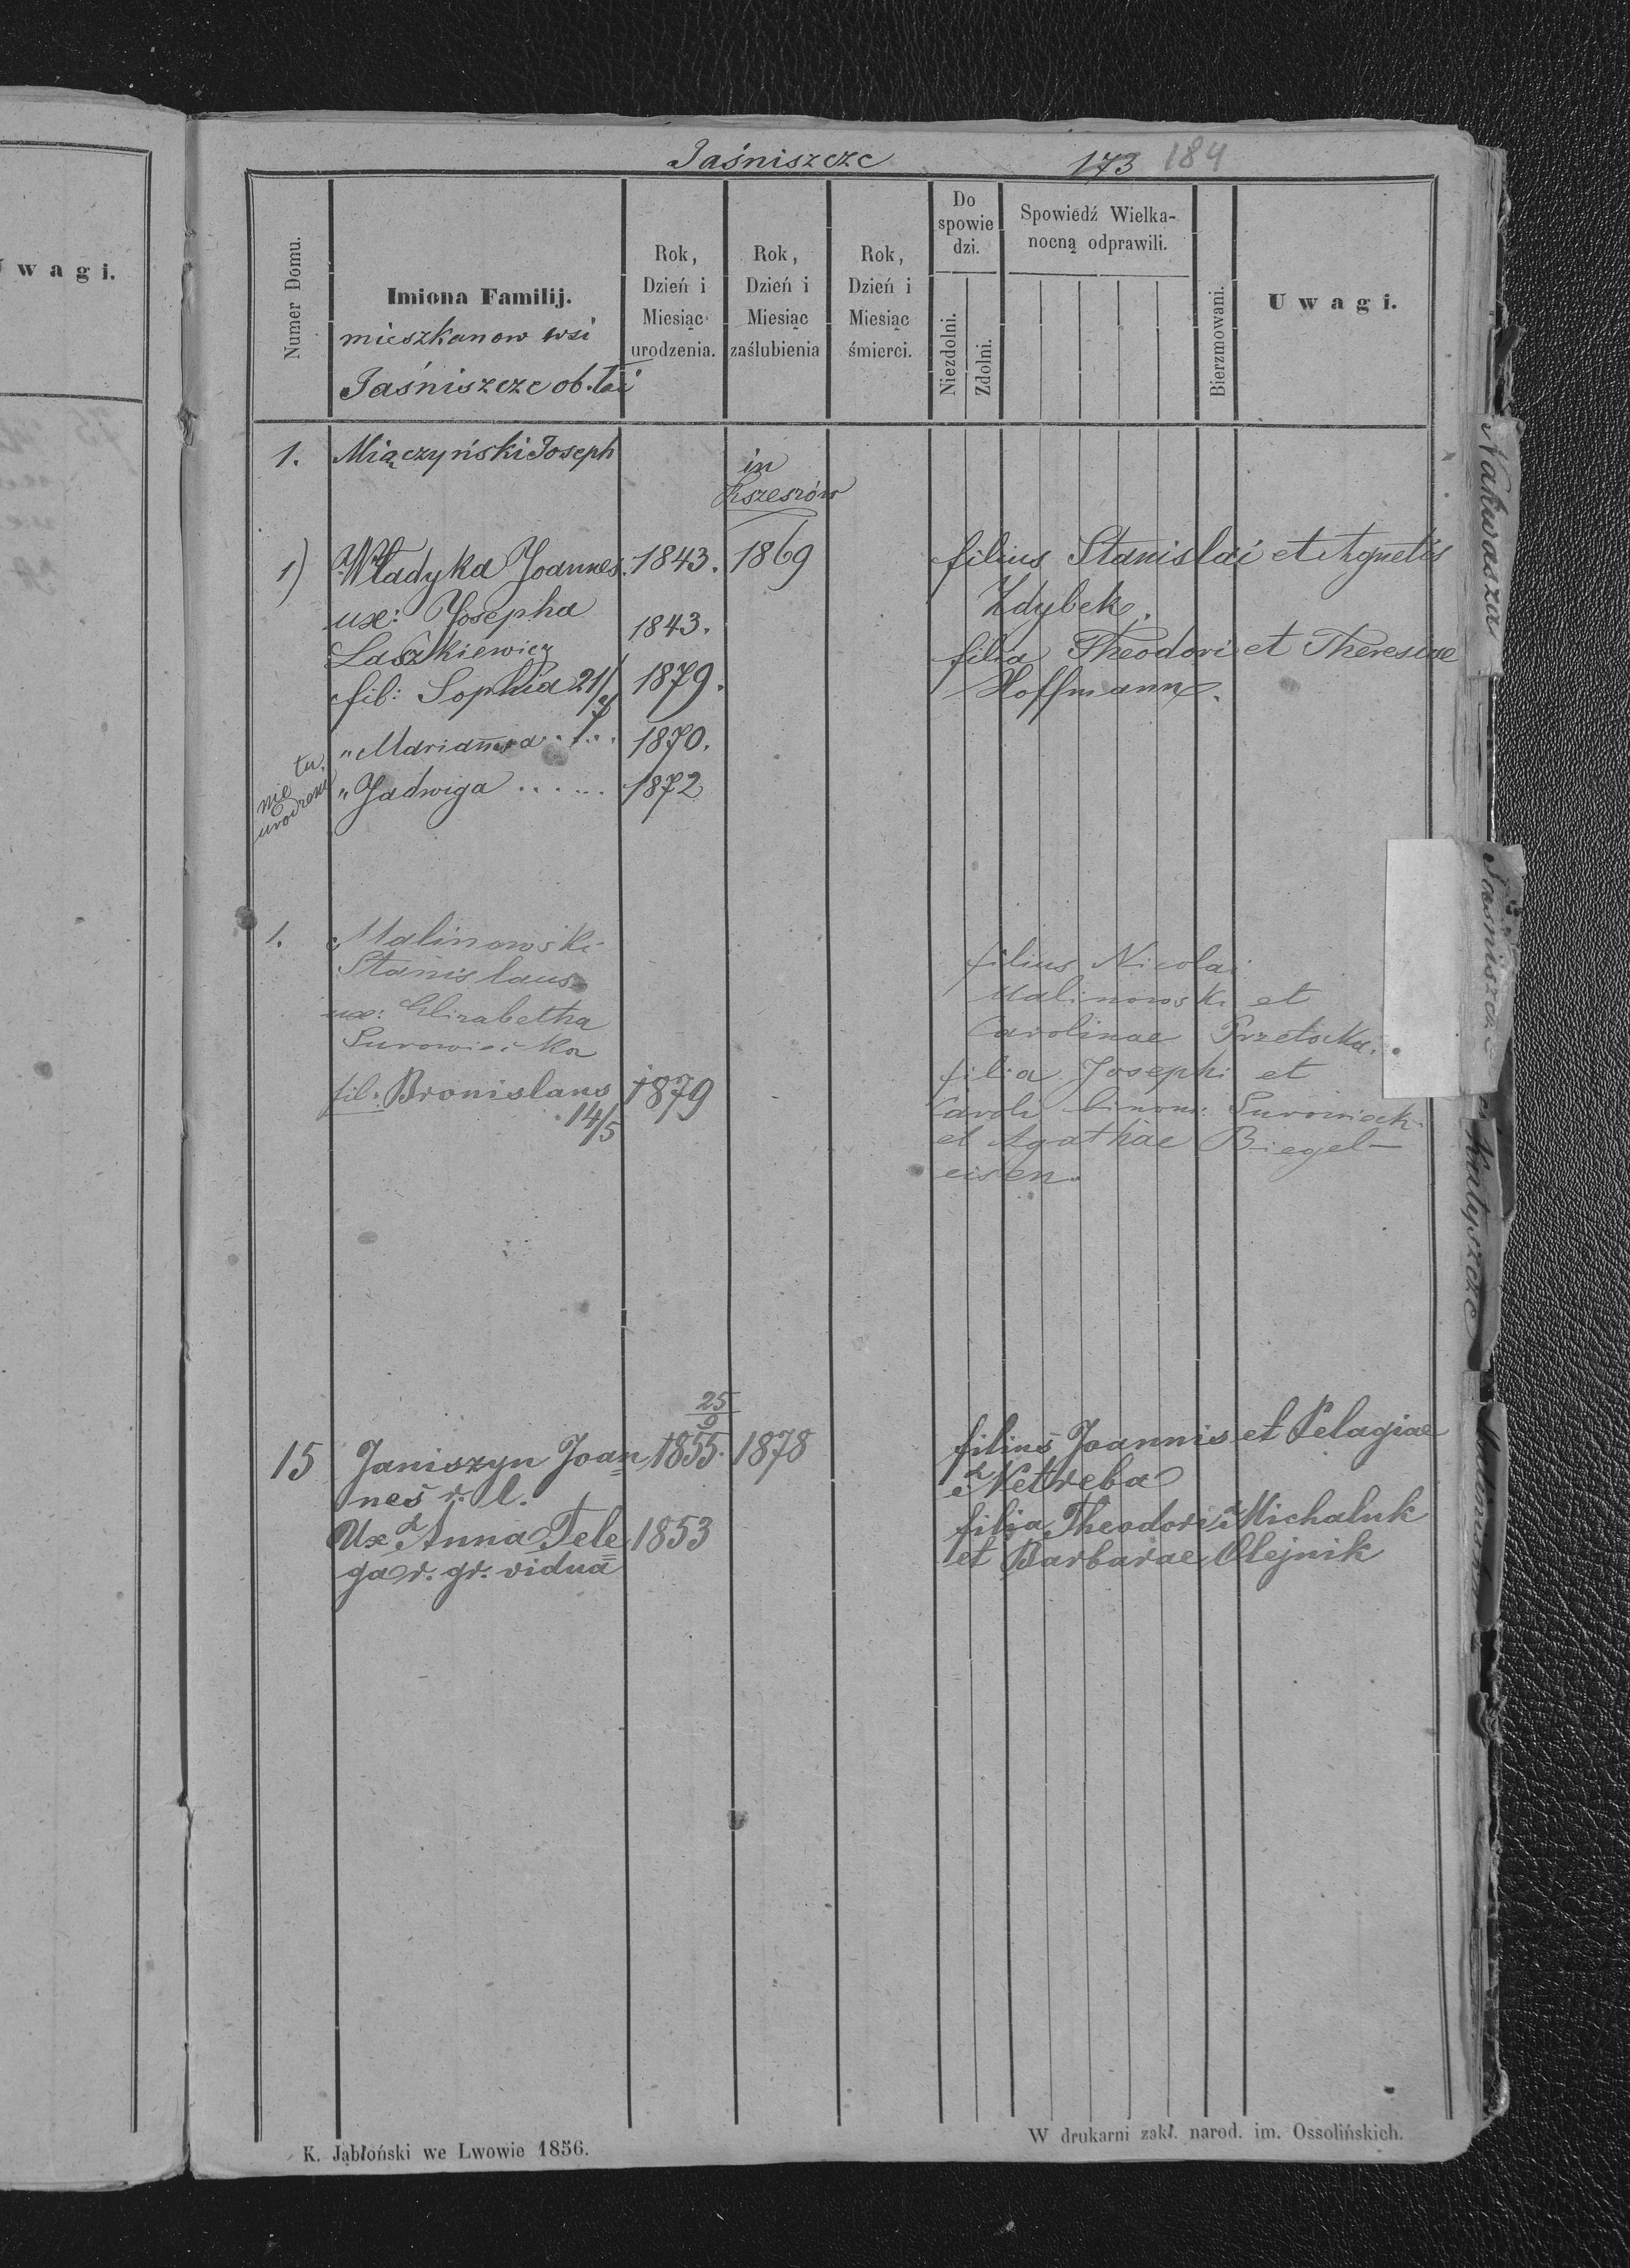 Uwagi.
Jaśniszcze 173 184
Numer Domu.
Imiona Familij.
mieszkanow wsi
Jaśniszcze ob. łać
Rok,
Dzień i
Miesiąc
urodzenia.
Rok,
Dzień i
Miesiąc
zaślubienia
Rok,
Dzień i
Miesiąc
śmierci.
Do
spowie
dzi.
Niezdolni.
Zdolni.
Spowiedź Wielka-
nocną odprawili.
Bierzmowani.
Uwagi.
1. Miączyński Joseph
in
Rzeszów
1) Władyka Joannes. 1843. 1869 filius Stanislai et Agnetis
Zdybek.
ux: Josepha 1843.
Laszkiewicz filia Theodori et Theresiae
fil: Sophia 21/7 1879. Hoffmann.
" Marianna 1870.
" Jadwiga ...... 1872
nie tu
urodzene
1. Malinowski
Stanislaus filius Nicolai
Malinowski et
ux: Elisabetha Carolinae Przetocka.
Surowiecka filia Josephi et
fil. Bronislaus 1879 Caroli binom: Surowiecki
14/5 et Agathae Biegel-
eisen.
25/9
15 Janiszyn Joan 1855. 1878 filius Joannis et Pelagiae
nes r. l. Netreba
Ux Anna Tele 1853 filia Theodori Michaluk
ga r. gr. vidua et Barbarae Olejnik
K. Jabłoński we Lwowie 1856.
W drukarni zakł. narod. im. Ossolińskich.
Nakwasza
Jaśniszcze